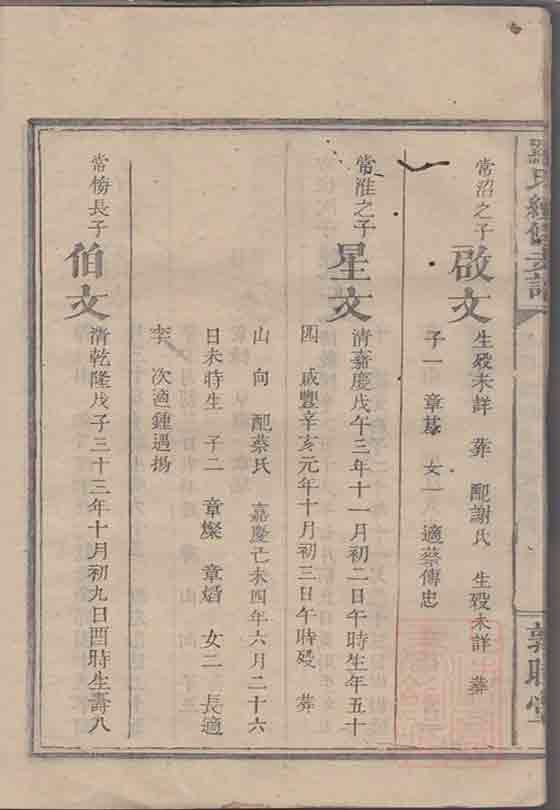 羅氏經修支譜
敦聃堂
常沼之子
啟文
生殁未詳 葬 配謝氏 生殁未詳 葬
子一 章基 女一 適蔡傳忠
常淮之子
星文
清嘉慶戊午三年十一月初二日午時生年五十
四 咸豐辛亥元年十月初三日午時殁 葬
山 向 配蔡氏 嘉慶己未四年六月二十六
日未時生 子二 章燦 章㷄 女二 長適
李 次適鍾遇揚
常𠊓長子
伯文
清乾隆戊子三十三年十月初九日酉時生壽八